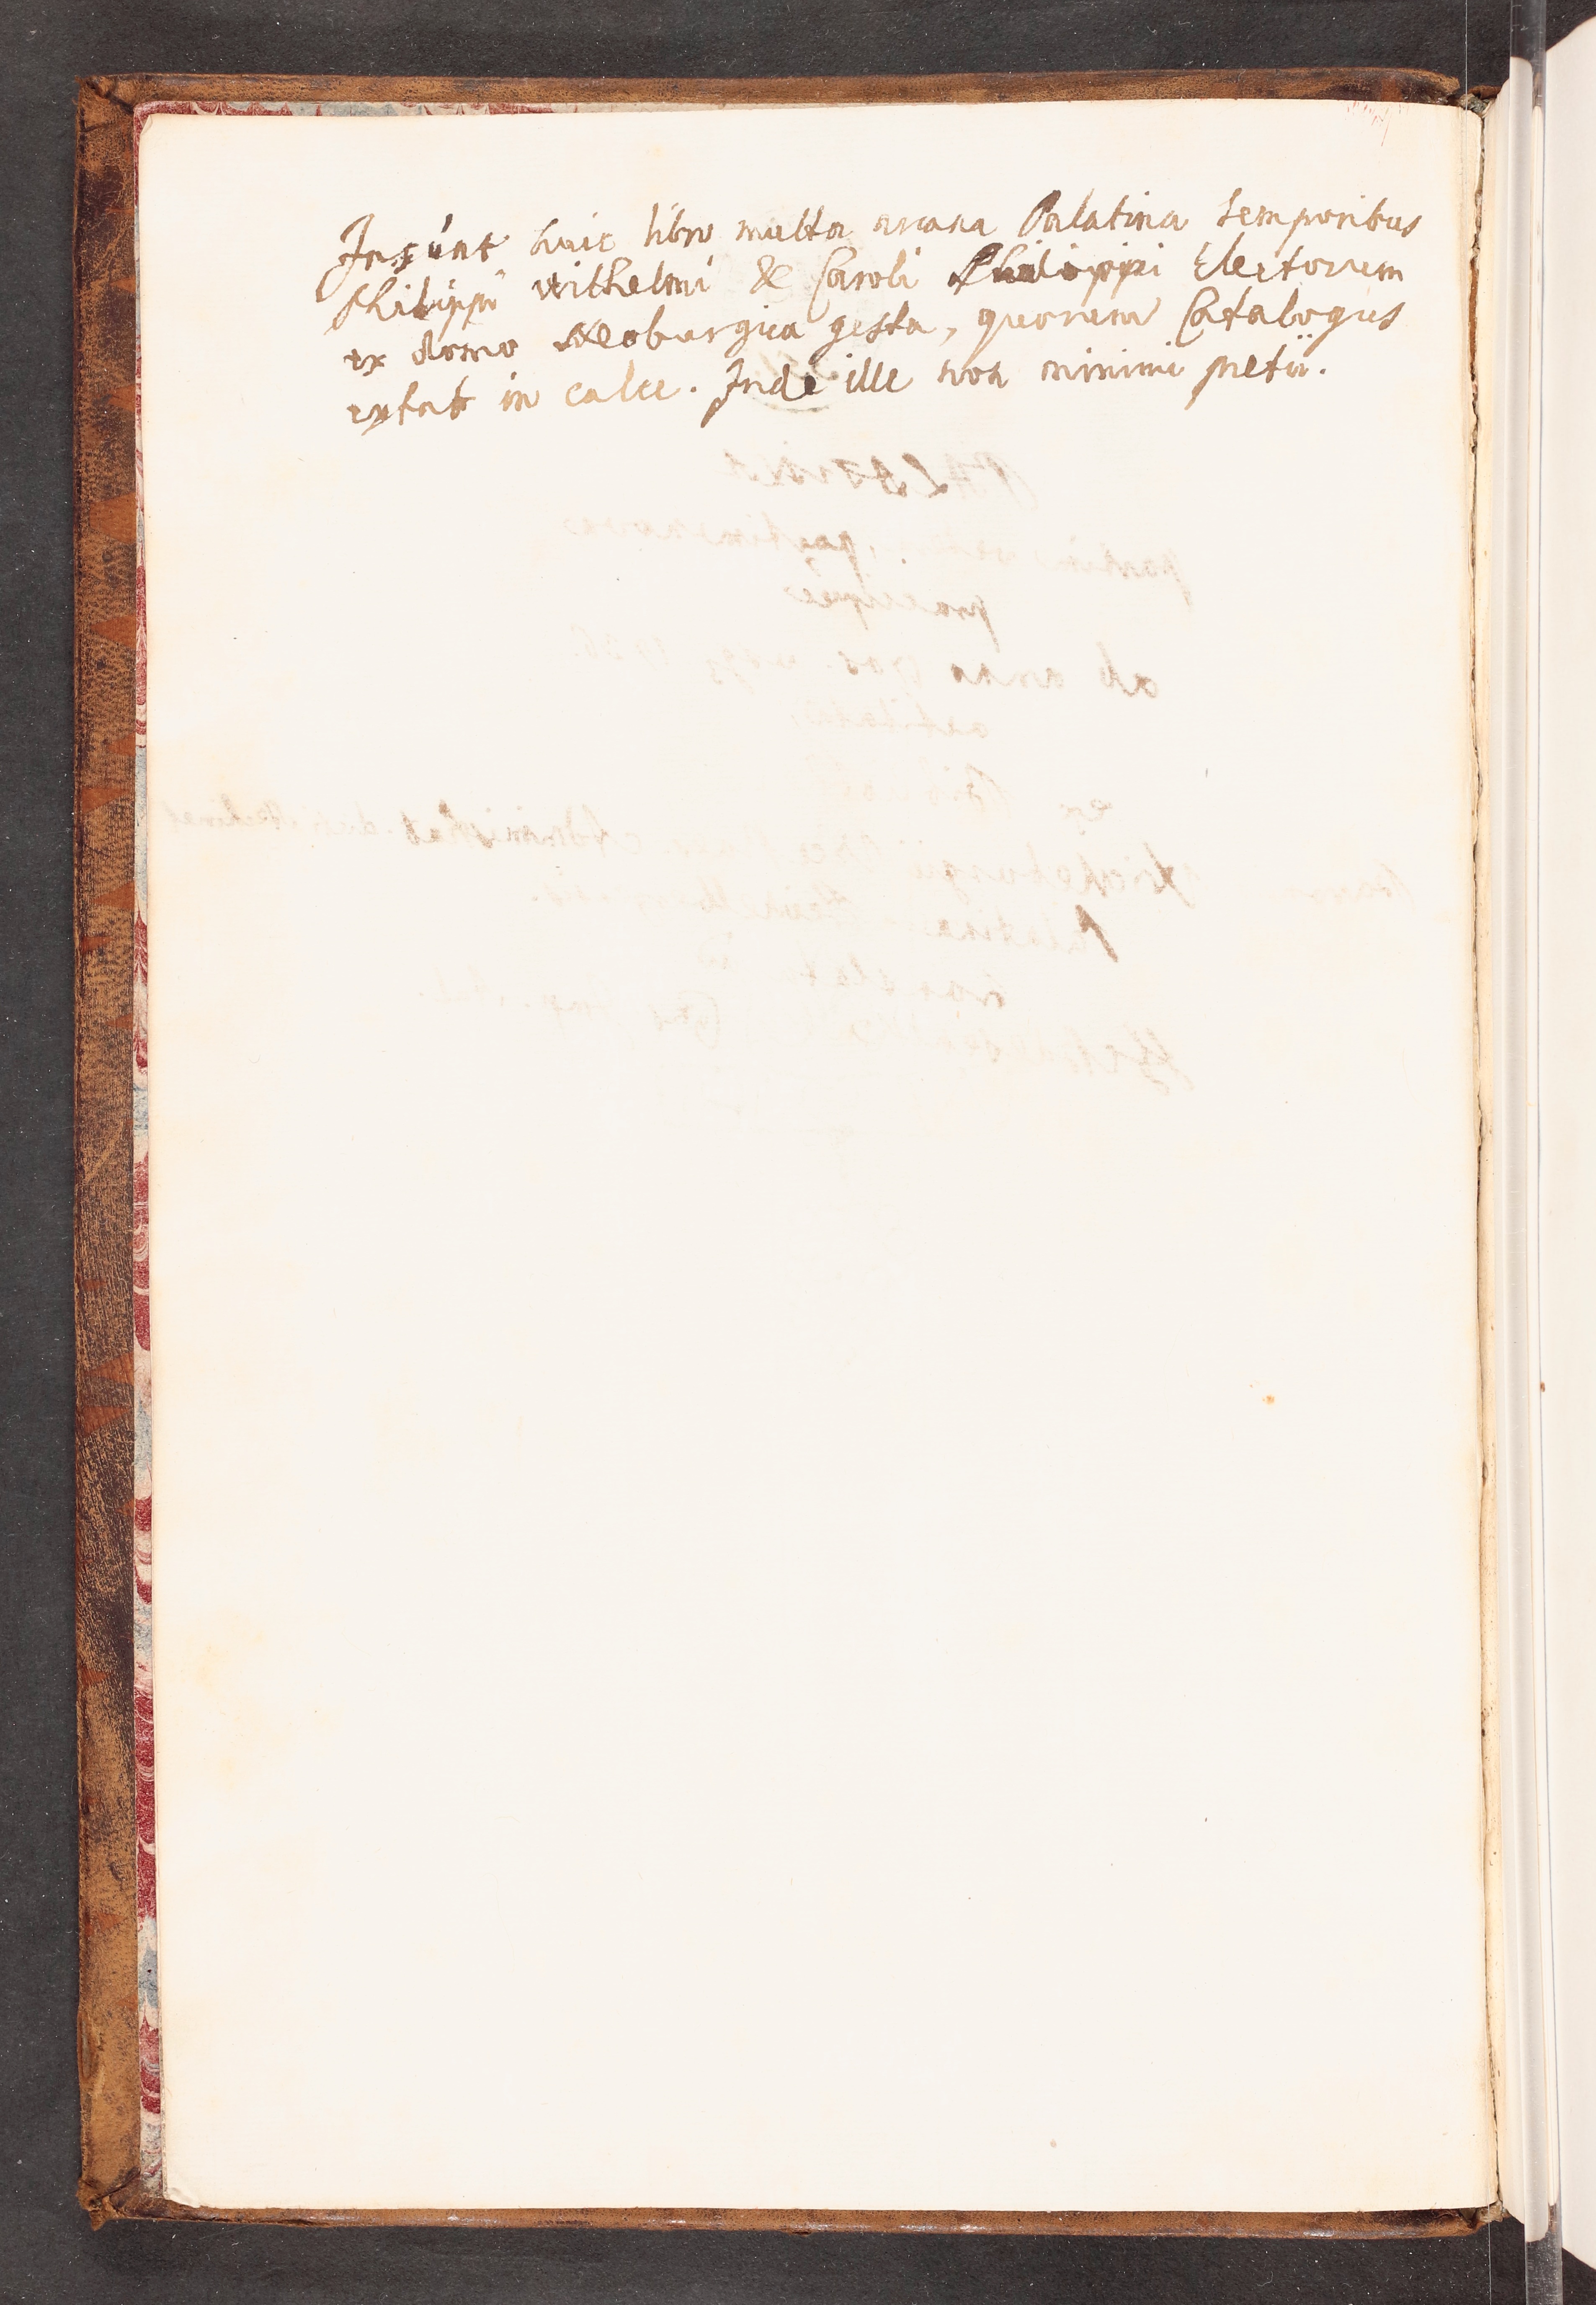 Insunt huic libro multa arcana Palatina temporibus
Philippi Wilhelmi & Caroli Philippi Electorum
ex domo Neoburgica gesta, quorum Catalogus
extat in calce. Inde ille non minimi pretii.